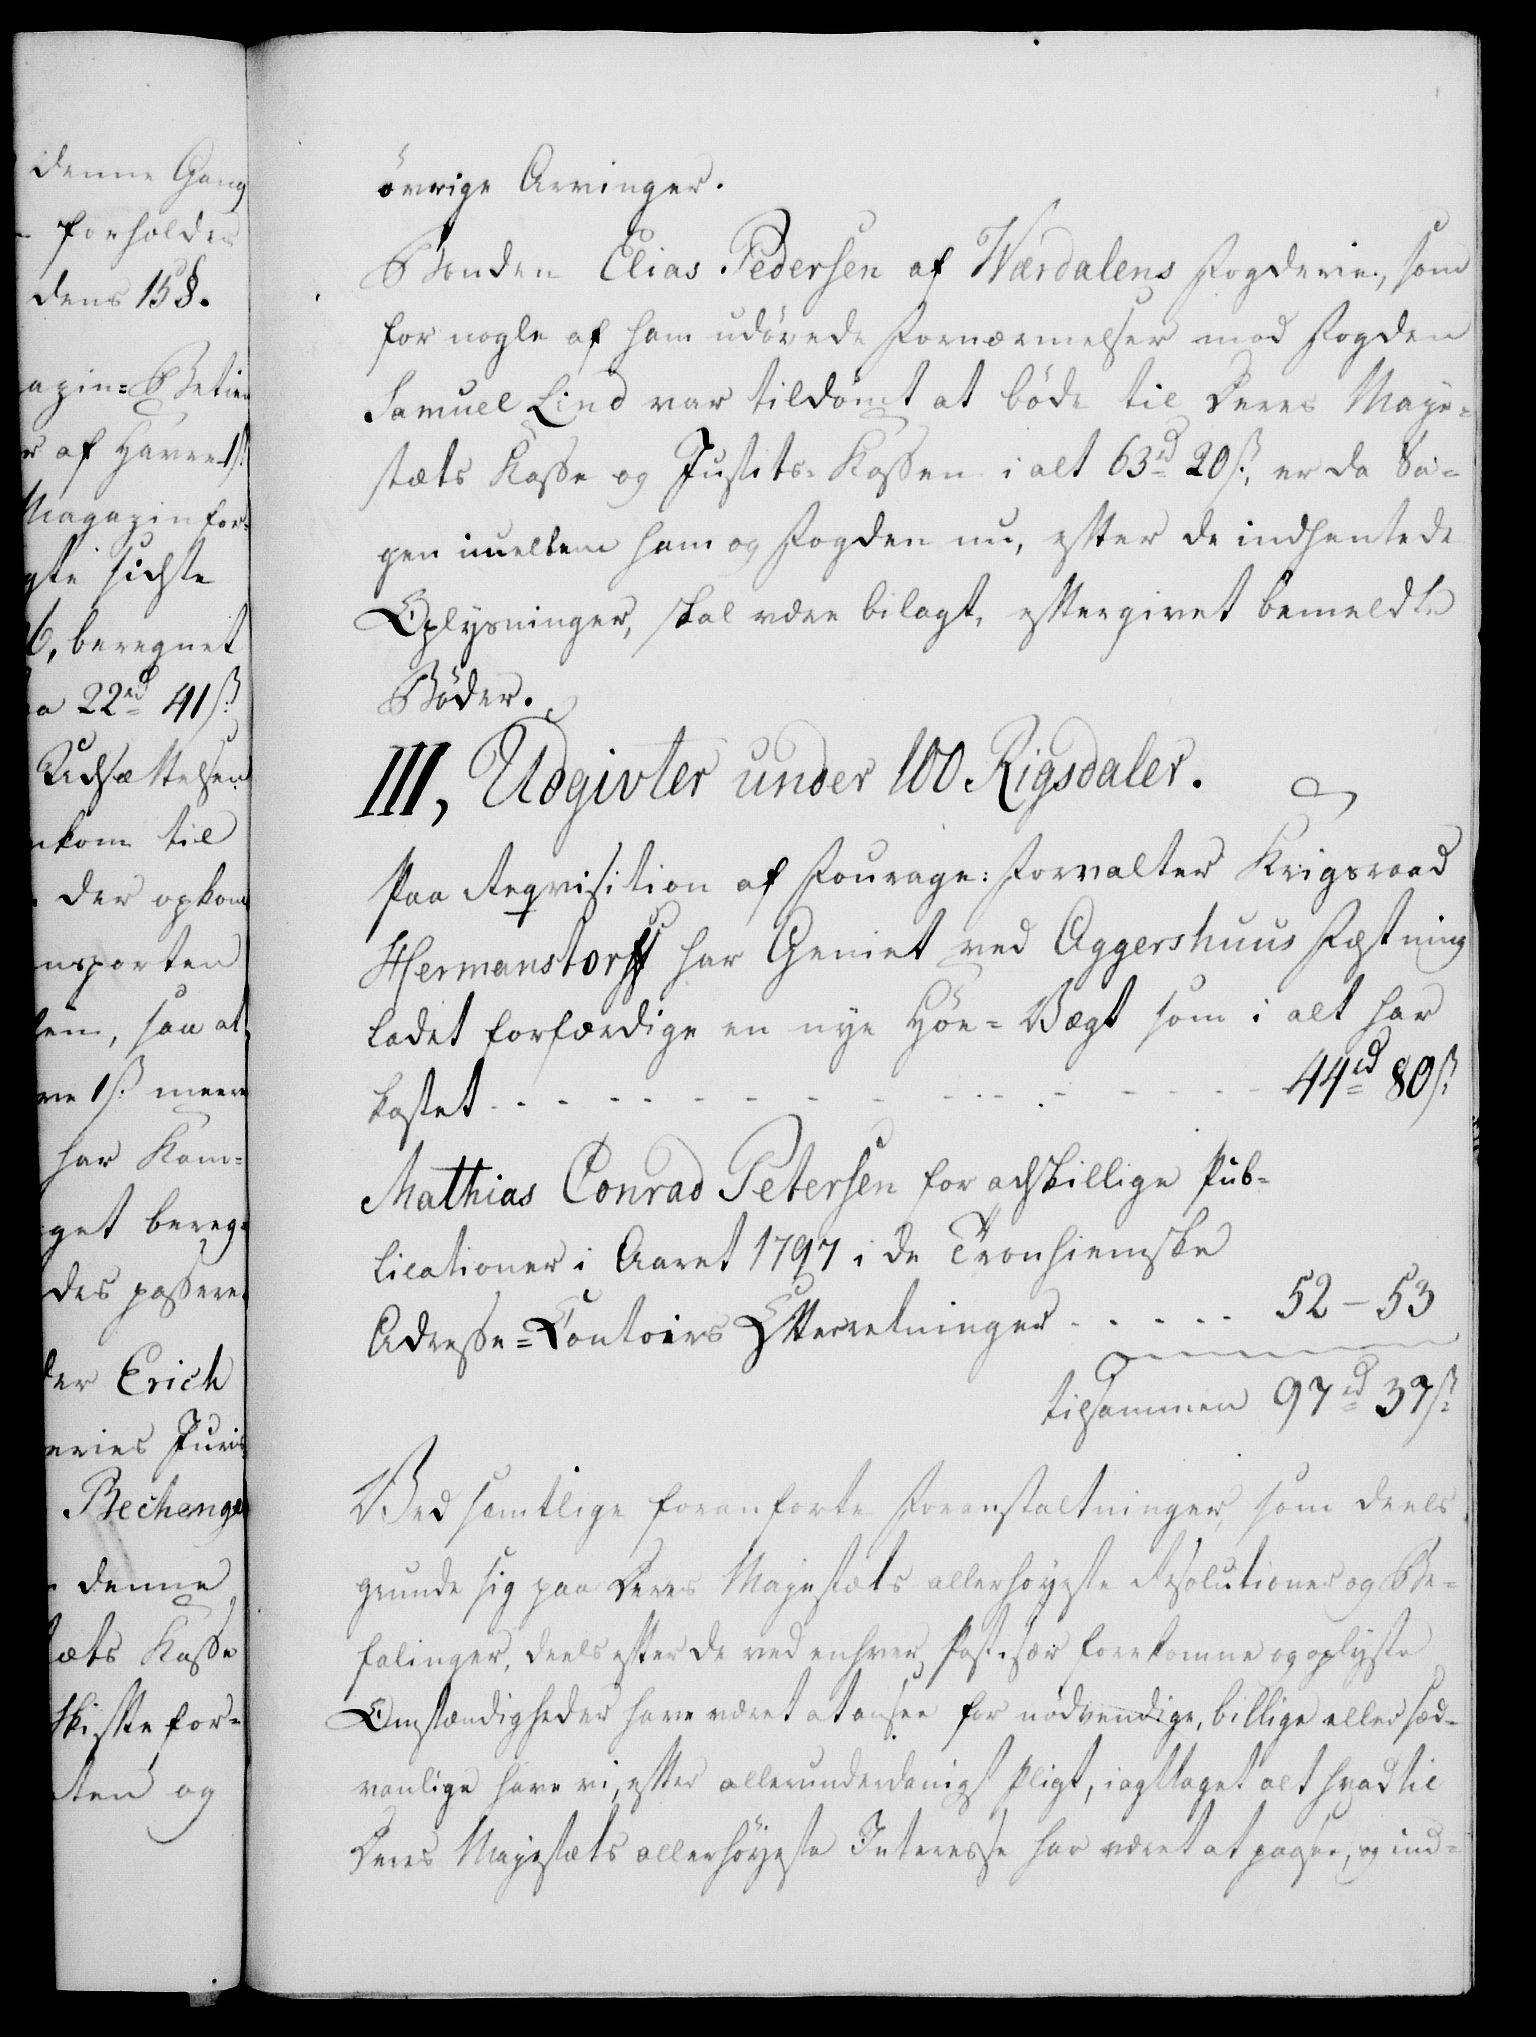 denne Gang
forholdes
dens 15 §.
agin=Betien
r af Havre 1 ß.
Magazinfor=
gte sidste
6, beregnet
a 22 rd 41 ß.
Udsættelsen
nkom til
der opkom
nsporten
sen, saa at
re 1 ß. meere
har Kam=
get bereg=
des passere
der Erich
eries Juris
Bechenga
denne
tæts Kasse
Skiftefor=
ten og
övrige Arvinger.
Bonden Elias Pedersen af Wærdalens Fogderie, som
for nogle af ham udövede Fornærmelser mod Fogden
Samuel Lind var tildömt at böde til Deres Maje=
stæts Kasse og Justits=Kassen i alt 63 rd 20 ß., er da Sa=
gen imellem ham og Fogden nu, efter de indhentede
Oplysninger, skal være bilagt, eftergivet bemeldte
Böder.
III, Udgivter under 100 Rigsdaler.
Paa Reqvisition af Fourage=Forvalter Krigsraad
Hermanstorff har Geniet ved Aggershuus Fæstning
ladet forfærdige en nye Höe=Vægt som i alt har
kostet - - - - - - - - - - - - - 44 rd 80 ß.
Mathias Conrad Petersen for adskillige Pub=
licationer i Aaret 1797 i de Tronhiemske
Adresse=Contoirs Efterretninger - - - - - 52 - 53
tilsammen 97 rd 37 ß.
Ved samtlige foranförte Foranstaltninger, som deels
grunde sig paa Deres Majestæts allerhöyeste Resolutioner og Be=
falinger, deels efter de ved enhver Post især forekomne og oplyste
Omstændigheder have været at ansee for nödvendige, billige eller sæd=
vanlige have vi, efter allerunderdanigst Pligt, iagttaget alt hvad til
Deres Majestæts allerhöyeste Interesse har været at paasee, og ind=